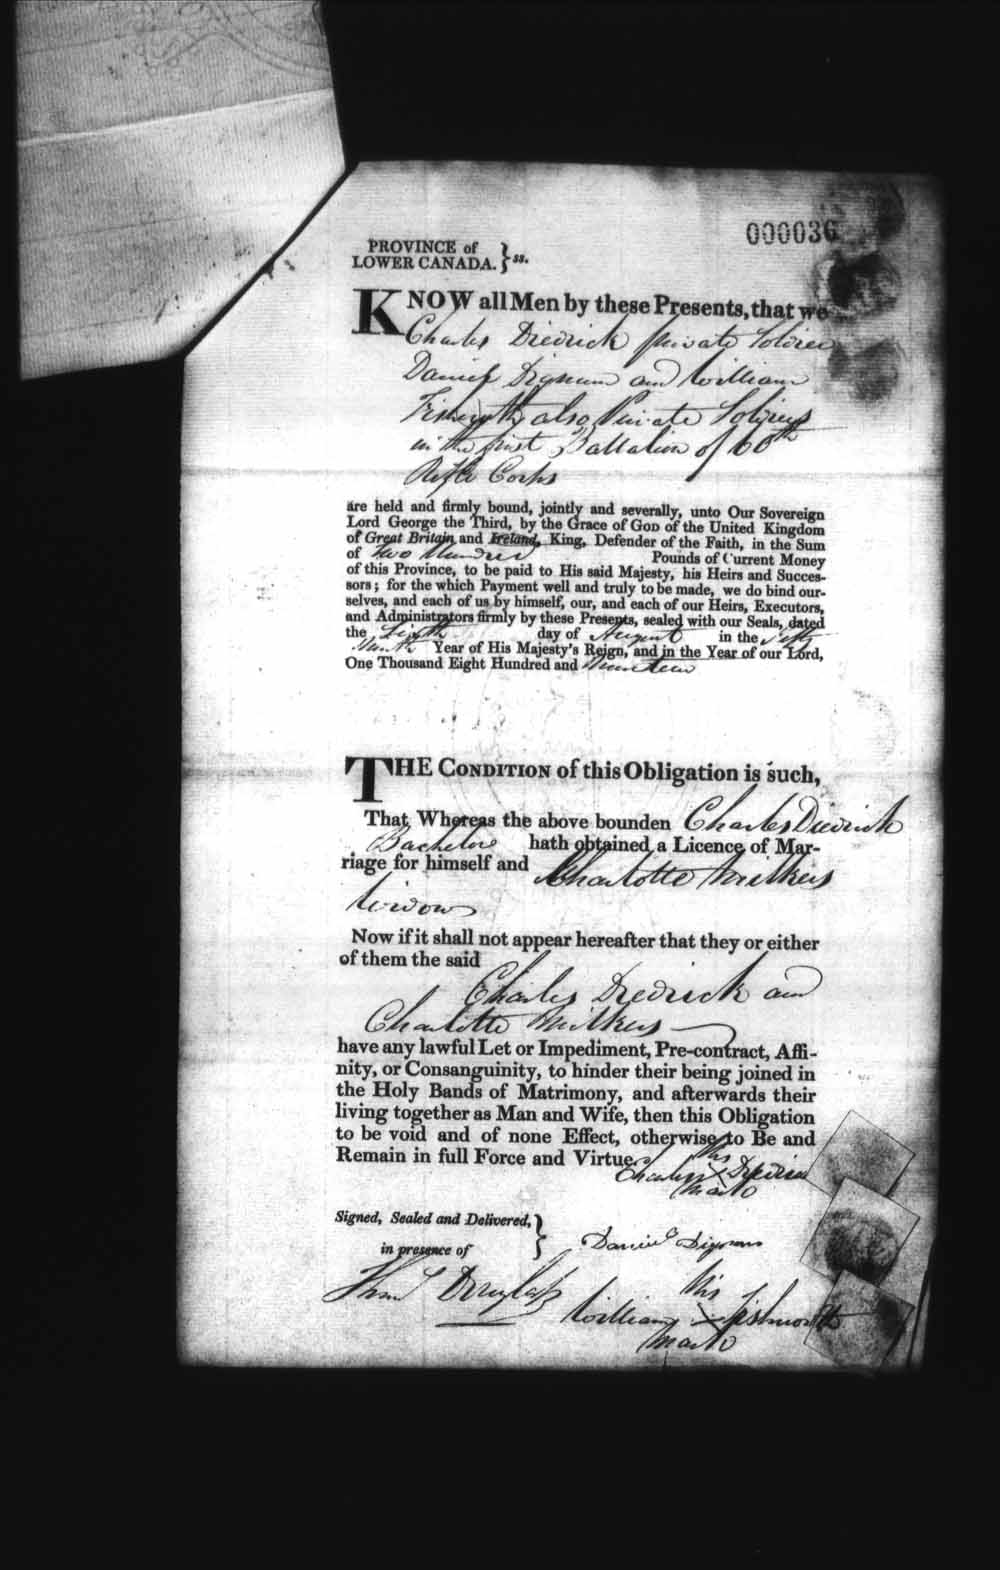 000036
PROVINCE of
LOWER CANADA. } ss.
KNOW all Men by these Presents, that we
Charles Diedrick private Soldier
Daniel Dignum and William
Fishworth also Private Soldiers
in the first Battalion of 60th
Rifle Corps
are held and firmly bound, jointly and severally, unto Our Sovereign
Lord George the Third, by the Grace of GOD of the United Kingdom
of Great Britain and Ireland, King, Defender of the Faith, in the Sum
of Two Hundred Pounds of Current Money
of this Province, to be paid to His said Majesty, his Heirs and Succes-
sors; for the which Payment well and truly to be made, we do bind our-
selves, and each of us by himself, our, and each of our Heirs, Executors,
and Administrators firmly by these Presents, sealed with our Seals, dated
the day of August in the fifty
Ninth Year of His Majesty's Reign, and in the Year of our Lord,
One Thousand Eight Hundred and Nineteen
THE CONDITION of this Obligation is such,
That Whereas the above bounden Charles Diedrick
Bachelor hath obtained a Licence of Mar-
riage for himself and Charlotte Milkers
widow
Now if it shall not appear hereafter that they or either
of them the said
Charles Diedrick and
Charlotte Milkers
have any lawful Let or Impediment, Pre-contract, Affi-
nity, or Consanguinity, to hinder their being joined in
the Holy Bands of Matrimony, and afterwards their
living together as Man and Wife, then this Obligation
to be void and of none Effect, otherwise to Be and
Remain in full Force and Virtue.
his
Charles X
mark
Signed, Sealed and Delivered, }
in presence of
Daniel Dignum
Thos Douglass
his
William X Fishworth
mark